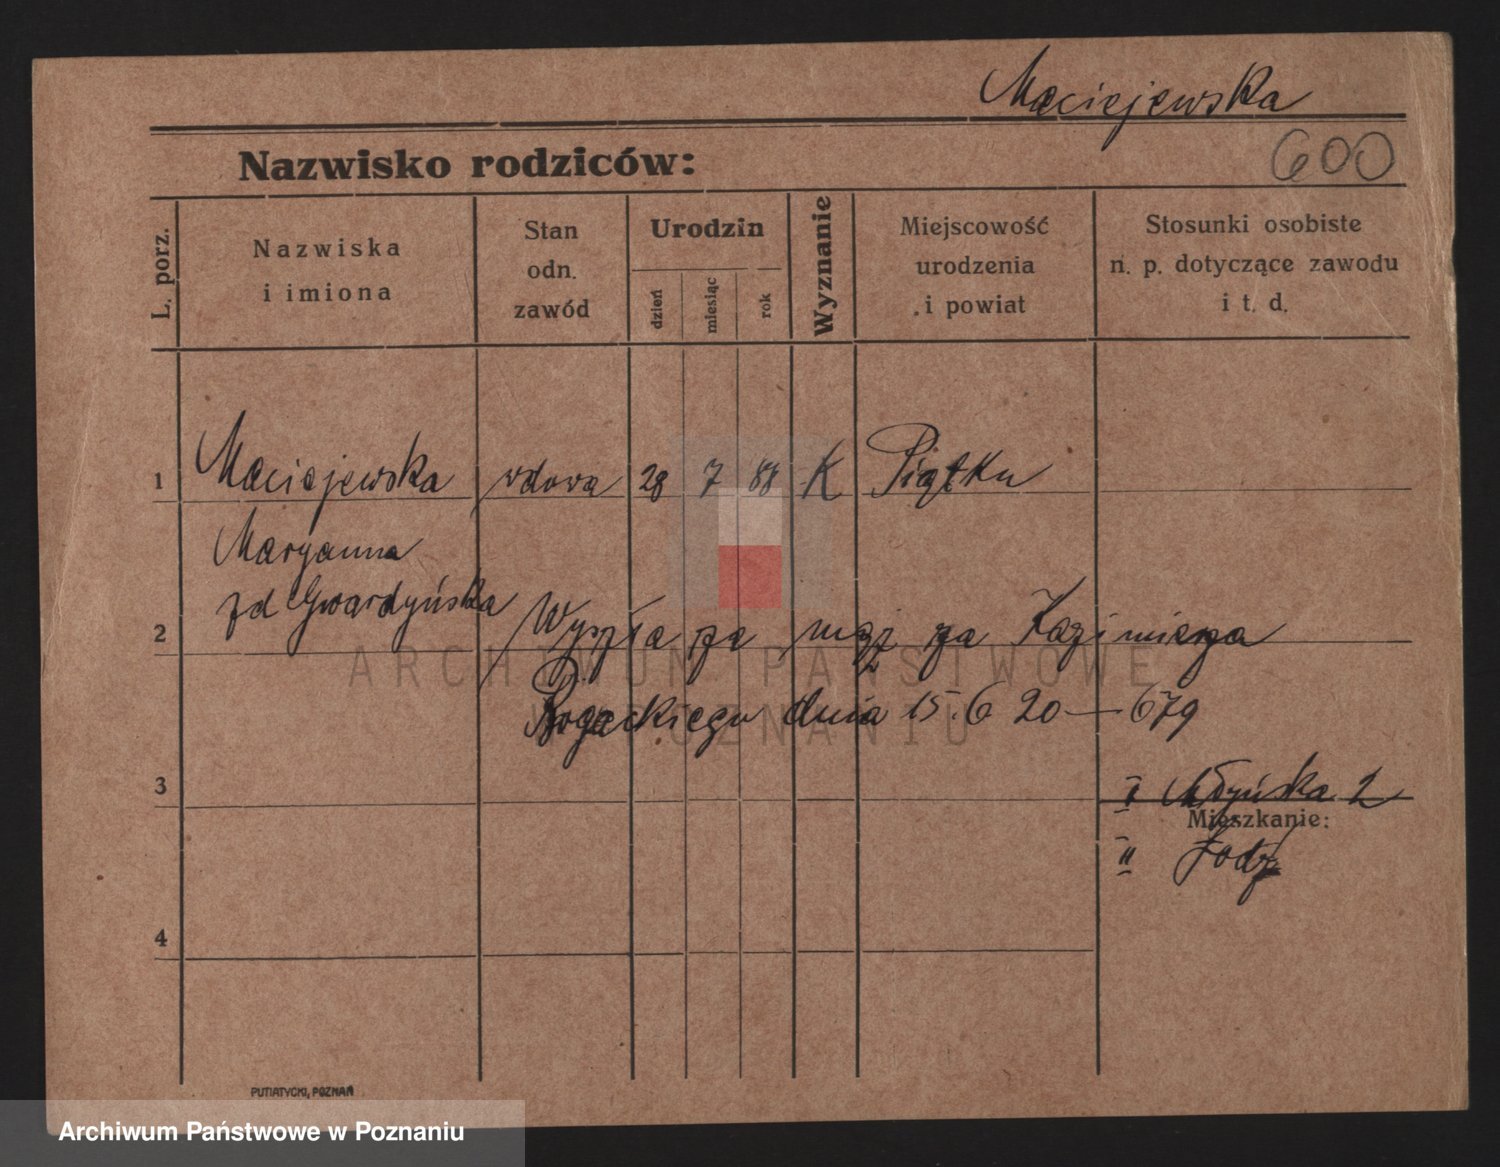 Maciejewska
600
Nazwisko rodziców:
L. porz.
Nazwiska
i imiona
Stan
odn.
zawód
Urodzin
dzień
miesiąc
rok
Wyznanie
Miejscowość
urodzenia
i powiat
Stosunki osobiste
n. p. dotyczące zawodu
i t. d.
1 Maciejewska wdowa 28 7 88 K Piątku
Maryanna
zd Gwardyńska
2 Wyszła za mąż za Kazimierza
ARCHIWUM PAŃSTWOWE
Rogackiego dnia 15.6 20 — 679
W POZNANIU
3
I Młyńska 2
Mieszkanie:
II Łodz
4
PUTIATYCKI, POZNAŃ
Archiwum Państwowe w Poznaniu